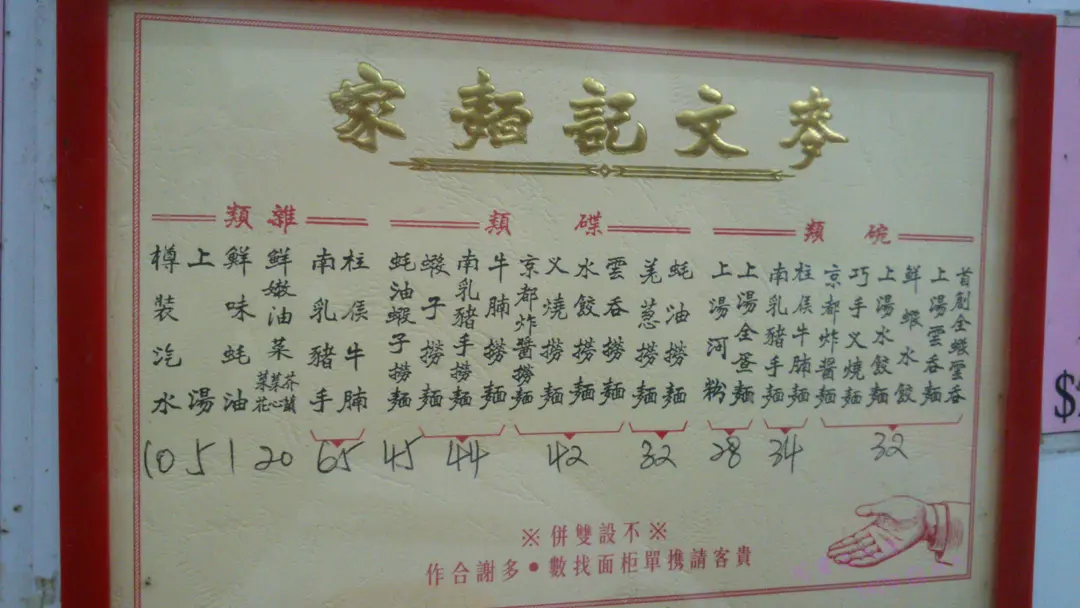 麥文記麵家
碗類
首創全蝦雲吞
上湯雲吞麵
鮮蝦水餃
上湯水餃麵
巧手叉燒麵
京都炸醬麵
32
柱侯牛腩麵
南乳豬手麵
34
上湯全蛋麵
上湯河粉
28
碟類
蚝油撈麵
羌葱撈麵
32
雲吞撈麵
水餃撈麵
叉燒撈麵
京都炸醬撈麵
42
牛腩撈麵
南乳豬手撈麵
蝦子撈麵
44
蚝油蝦子撈麵
45
雜類
柱侯牛腩
南乳豬手
65
鮮嫩油菜
芥蘭
菜心
菜花
20
鮮味蚝油
1
上湯
5
樽裝汽水
10
※不設雙併※
貴客請携單柜面找數•多謝合作
$